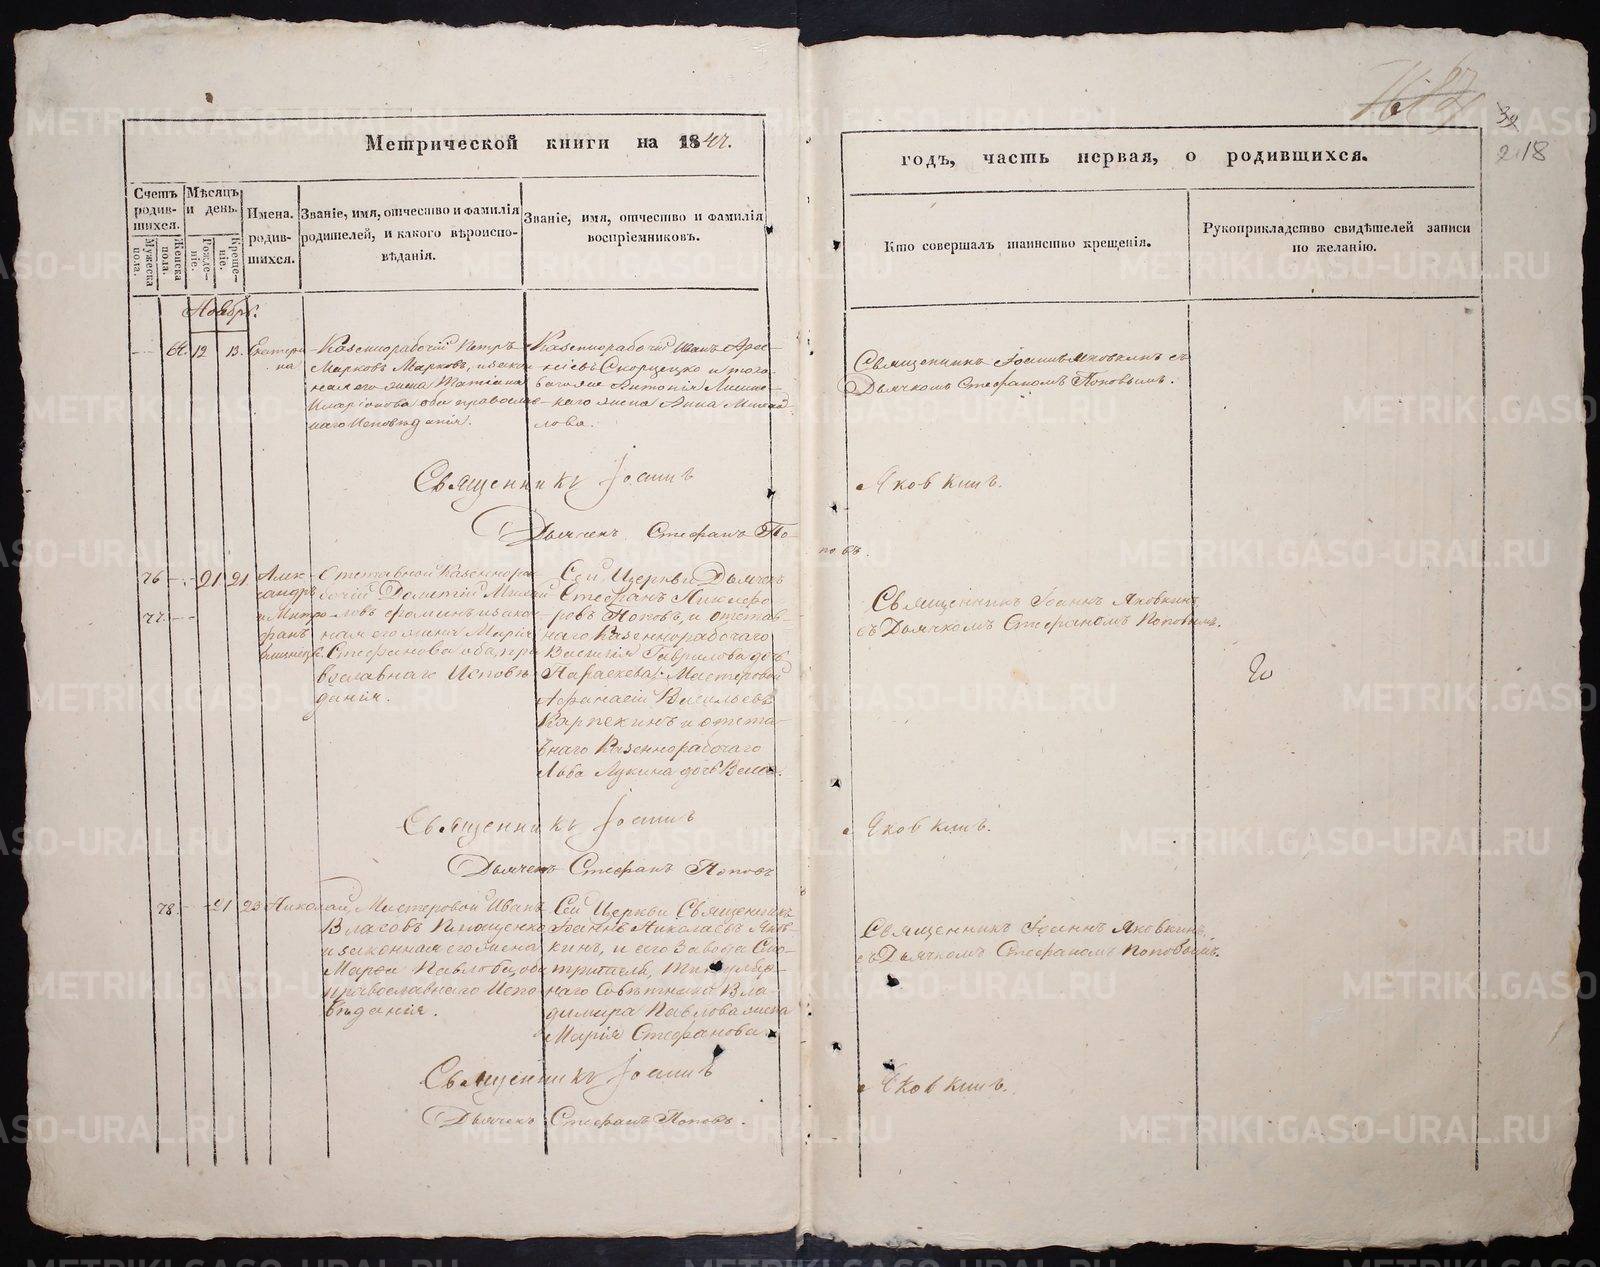 Метрической книги на 18
годъ, часть первая, о родившихся.
Счетъ родившихся.
Мужеска пола.
Женска пола.
Мѣсяцъ и день.
Рожденіе.
Крещеніе.
Имена. родившихся.
Званіе, имя, отчество и фамилія
родителей, и какого вѣроиспо-
вѣданія.
Званіе, имя, отчество и фамилія
воспріемниковъ.
Кто совершалъ таинство крещенія.
Рукоприкладство свидѣтелей записи
по желанію.
218
Ноябрь.
12 13. Екатери
на
Казеннорабочій Петръ
Марковъ Марковъ, и закон
ная его жена Татіана
оба православ
наго Исповѣданія.
Казеннорабочій Иванъ
жена Анна
Священникъ Іоаннъ Яковкинъ съ
Дьячкомъ Стефаномъ Поповымъ.
Священникъ Іоаннъ Яковкинъ.
Дьячекъ Стефанъ По-
повъ.
76 21 21 Алек
сандръ
77 и Митро
фанъ
близнецы
Отставной Казеннора
бочій Дометій
закон
ная его жена Марія
Стефанова оба пра
вославнаго Исповѣ
данія.
Сей Церкви Дьячекъ
Стефанъ Никифо
ровъ Поповъ, и отстав-
наго Казеннорабочаго
Василія Гаврилова дочь
Параскева; Мастеровой
Афанасій Васильевъ
и отста-
внаго Казеннорабочаго
Льва Лукина дочь
Священникъ Іоаннъ Яковкинъ
съ Дьячкомъ Стефаномъ Поповымъ.
20
Священникъ Іоаннъ Яковкинъ.
Дьячекъ Стефанъ Поповъ
78. 21 23 Николай
Мастеровой Иванъ
Власовъ
и законная его жена
Марѳа Павлова, оба
православнаго Испо
вѣданія.
Сей Церкви Священникъ
Іоаннъ Николаевъ Яков
кинъ, и сего Завода Смо
трителя, Титуляр-
наго Совѣтника Вла-
димира Павлова жена
Марія Стефанова
Священникъ Іоаннъ Яковкинъ
съ Дьячкомъ Стефаномъ Поповымъ.
Священникъ Іоаннъ Яковкинъ.
Дьячекъ Стефанъ Поповъ.
METRIKI.GASO-URAL.RU